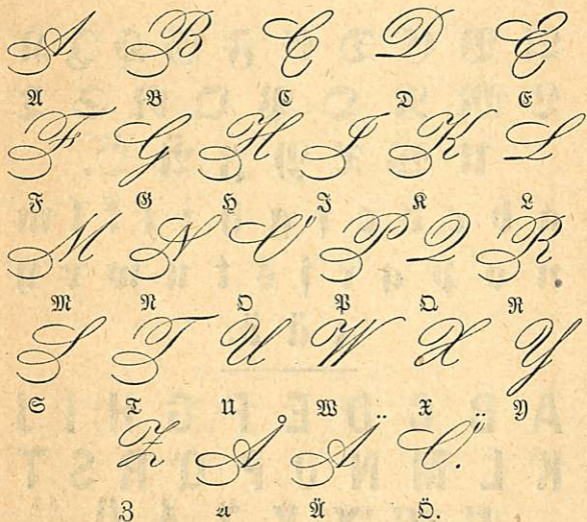 A B C D E
A B C D E
F G H I K L
F G H I K L
M N O P Q R
M N O P Q R
S T U W X Y
S T U W X Y
Z Å Ä Ö.
Z Å Ä Ö.